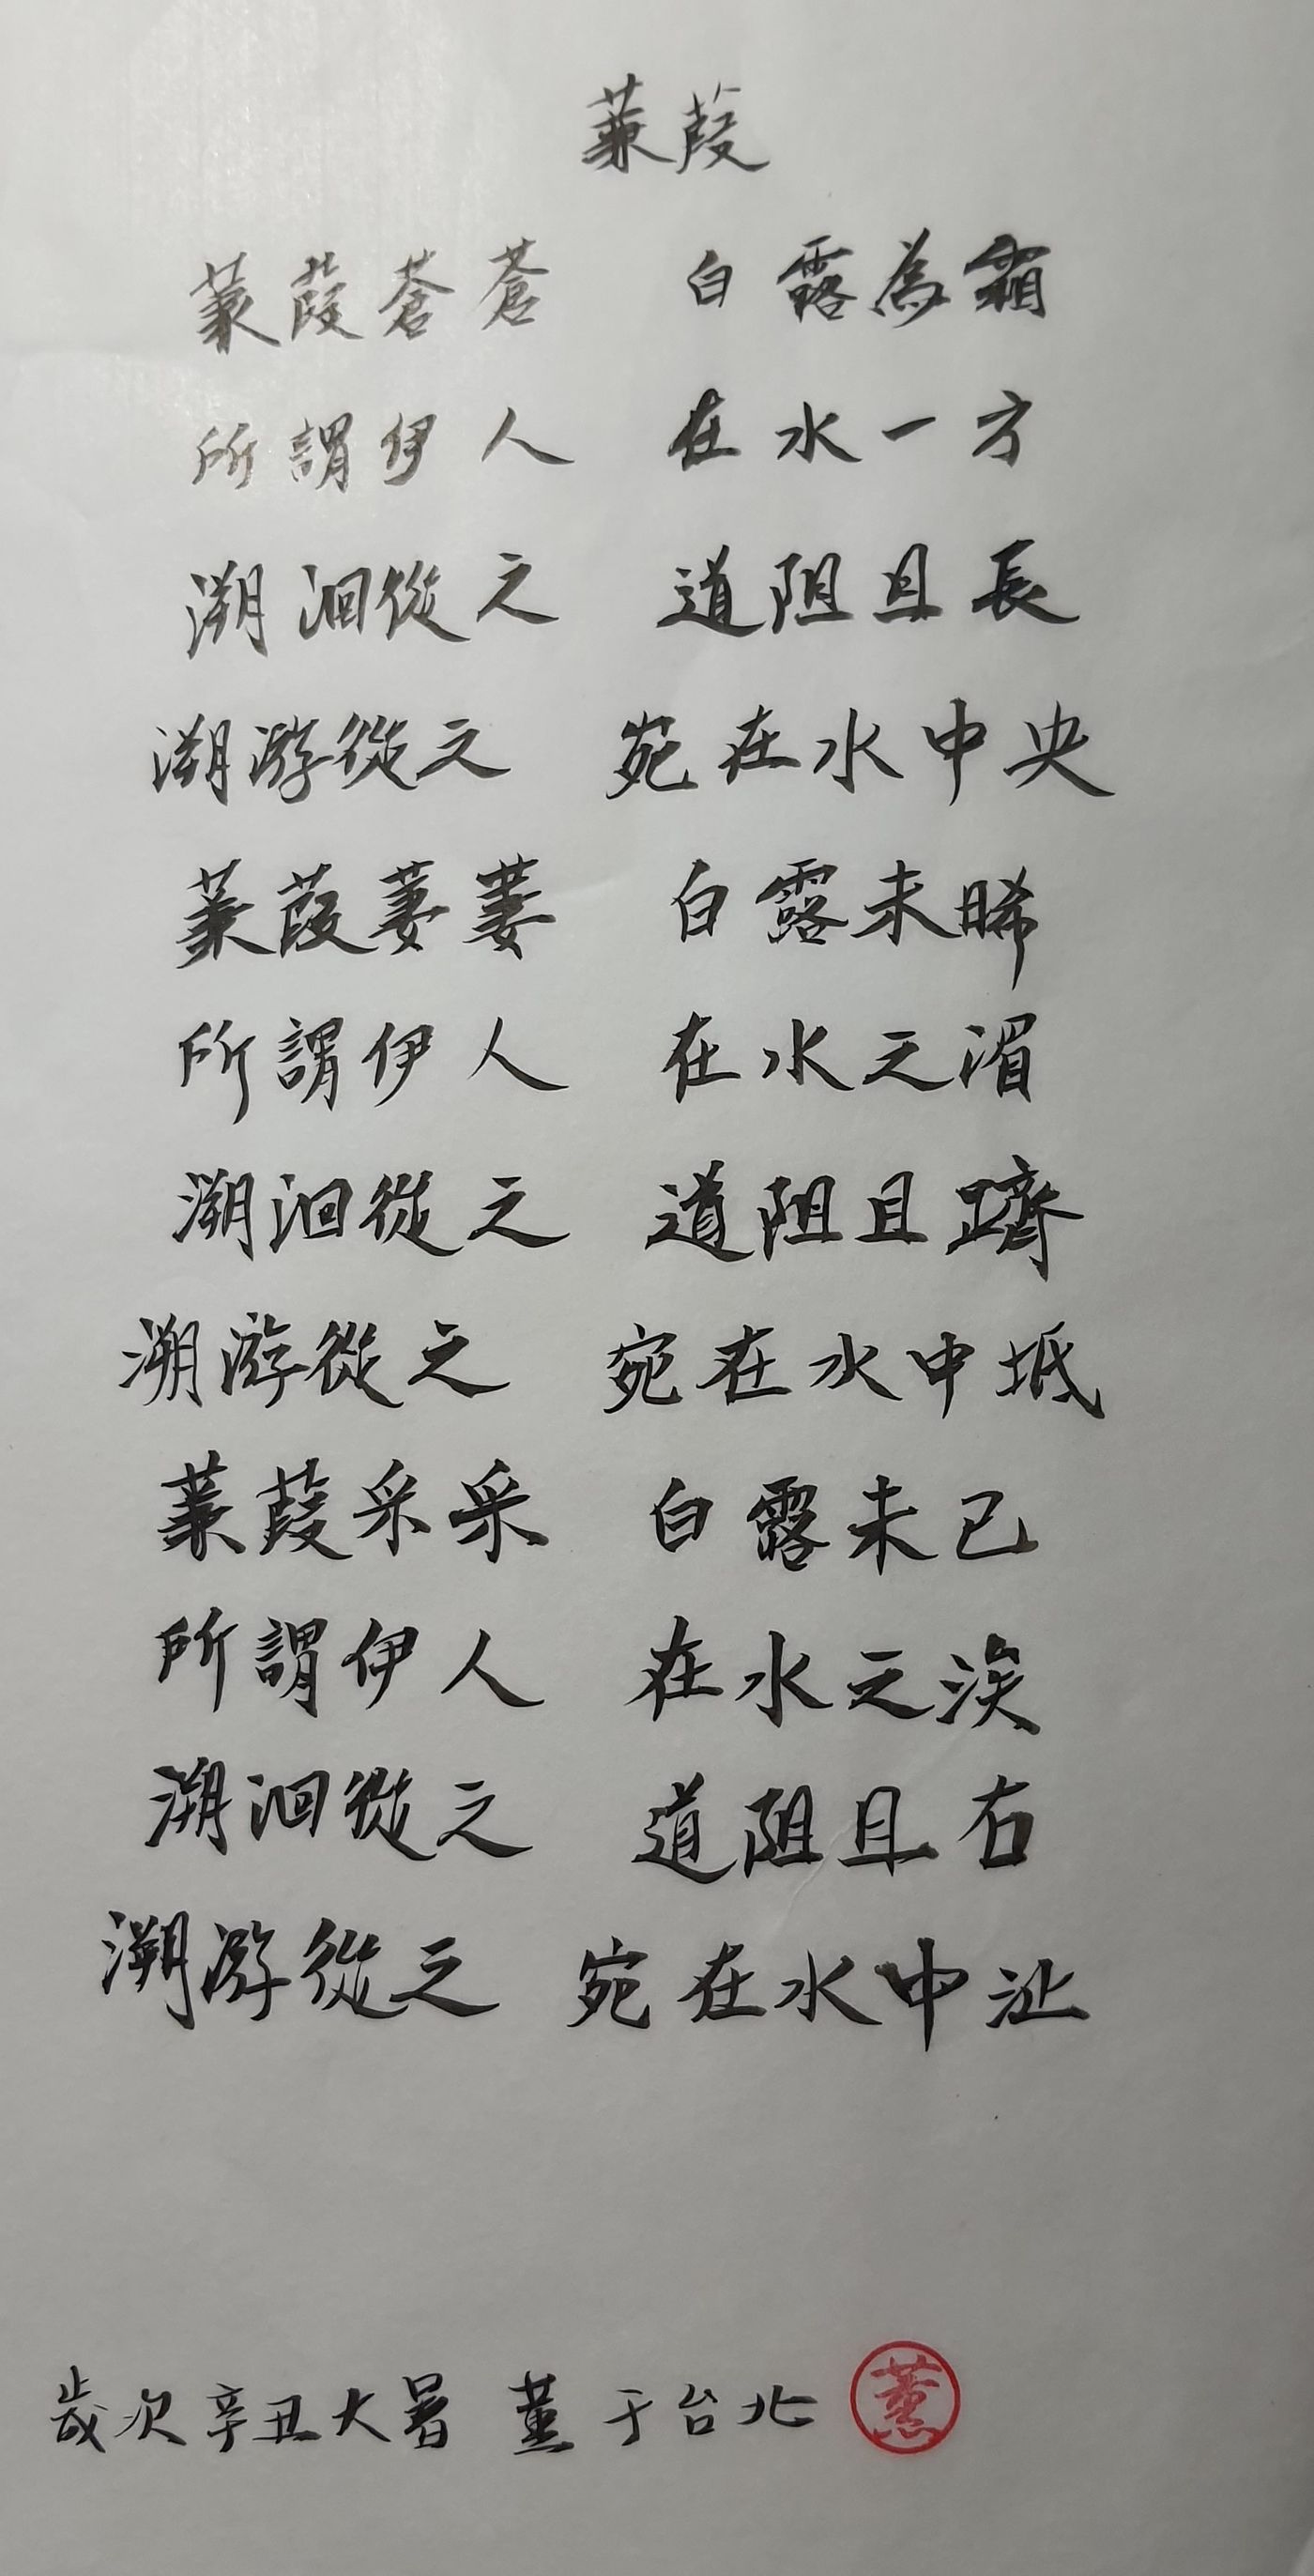 蒹葭
蒹葭蒼蒼 白露為霜
所謂伊人 在水一方
溯洄從之 道阻且長
溯游從之 宛在水中央
蒹葭萋萋 白露未晞
所謂伊人 在水之湄
溯洄從之 道阻且躋
溯游從之 宛在水中坻
蒹葭采采 白露未已
所謂伊人 在水之涘
溯洄從之 道阻且右
溯游從之 宛在水中沚
歲次辛丑大暑 薰于台北